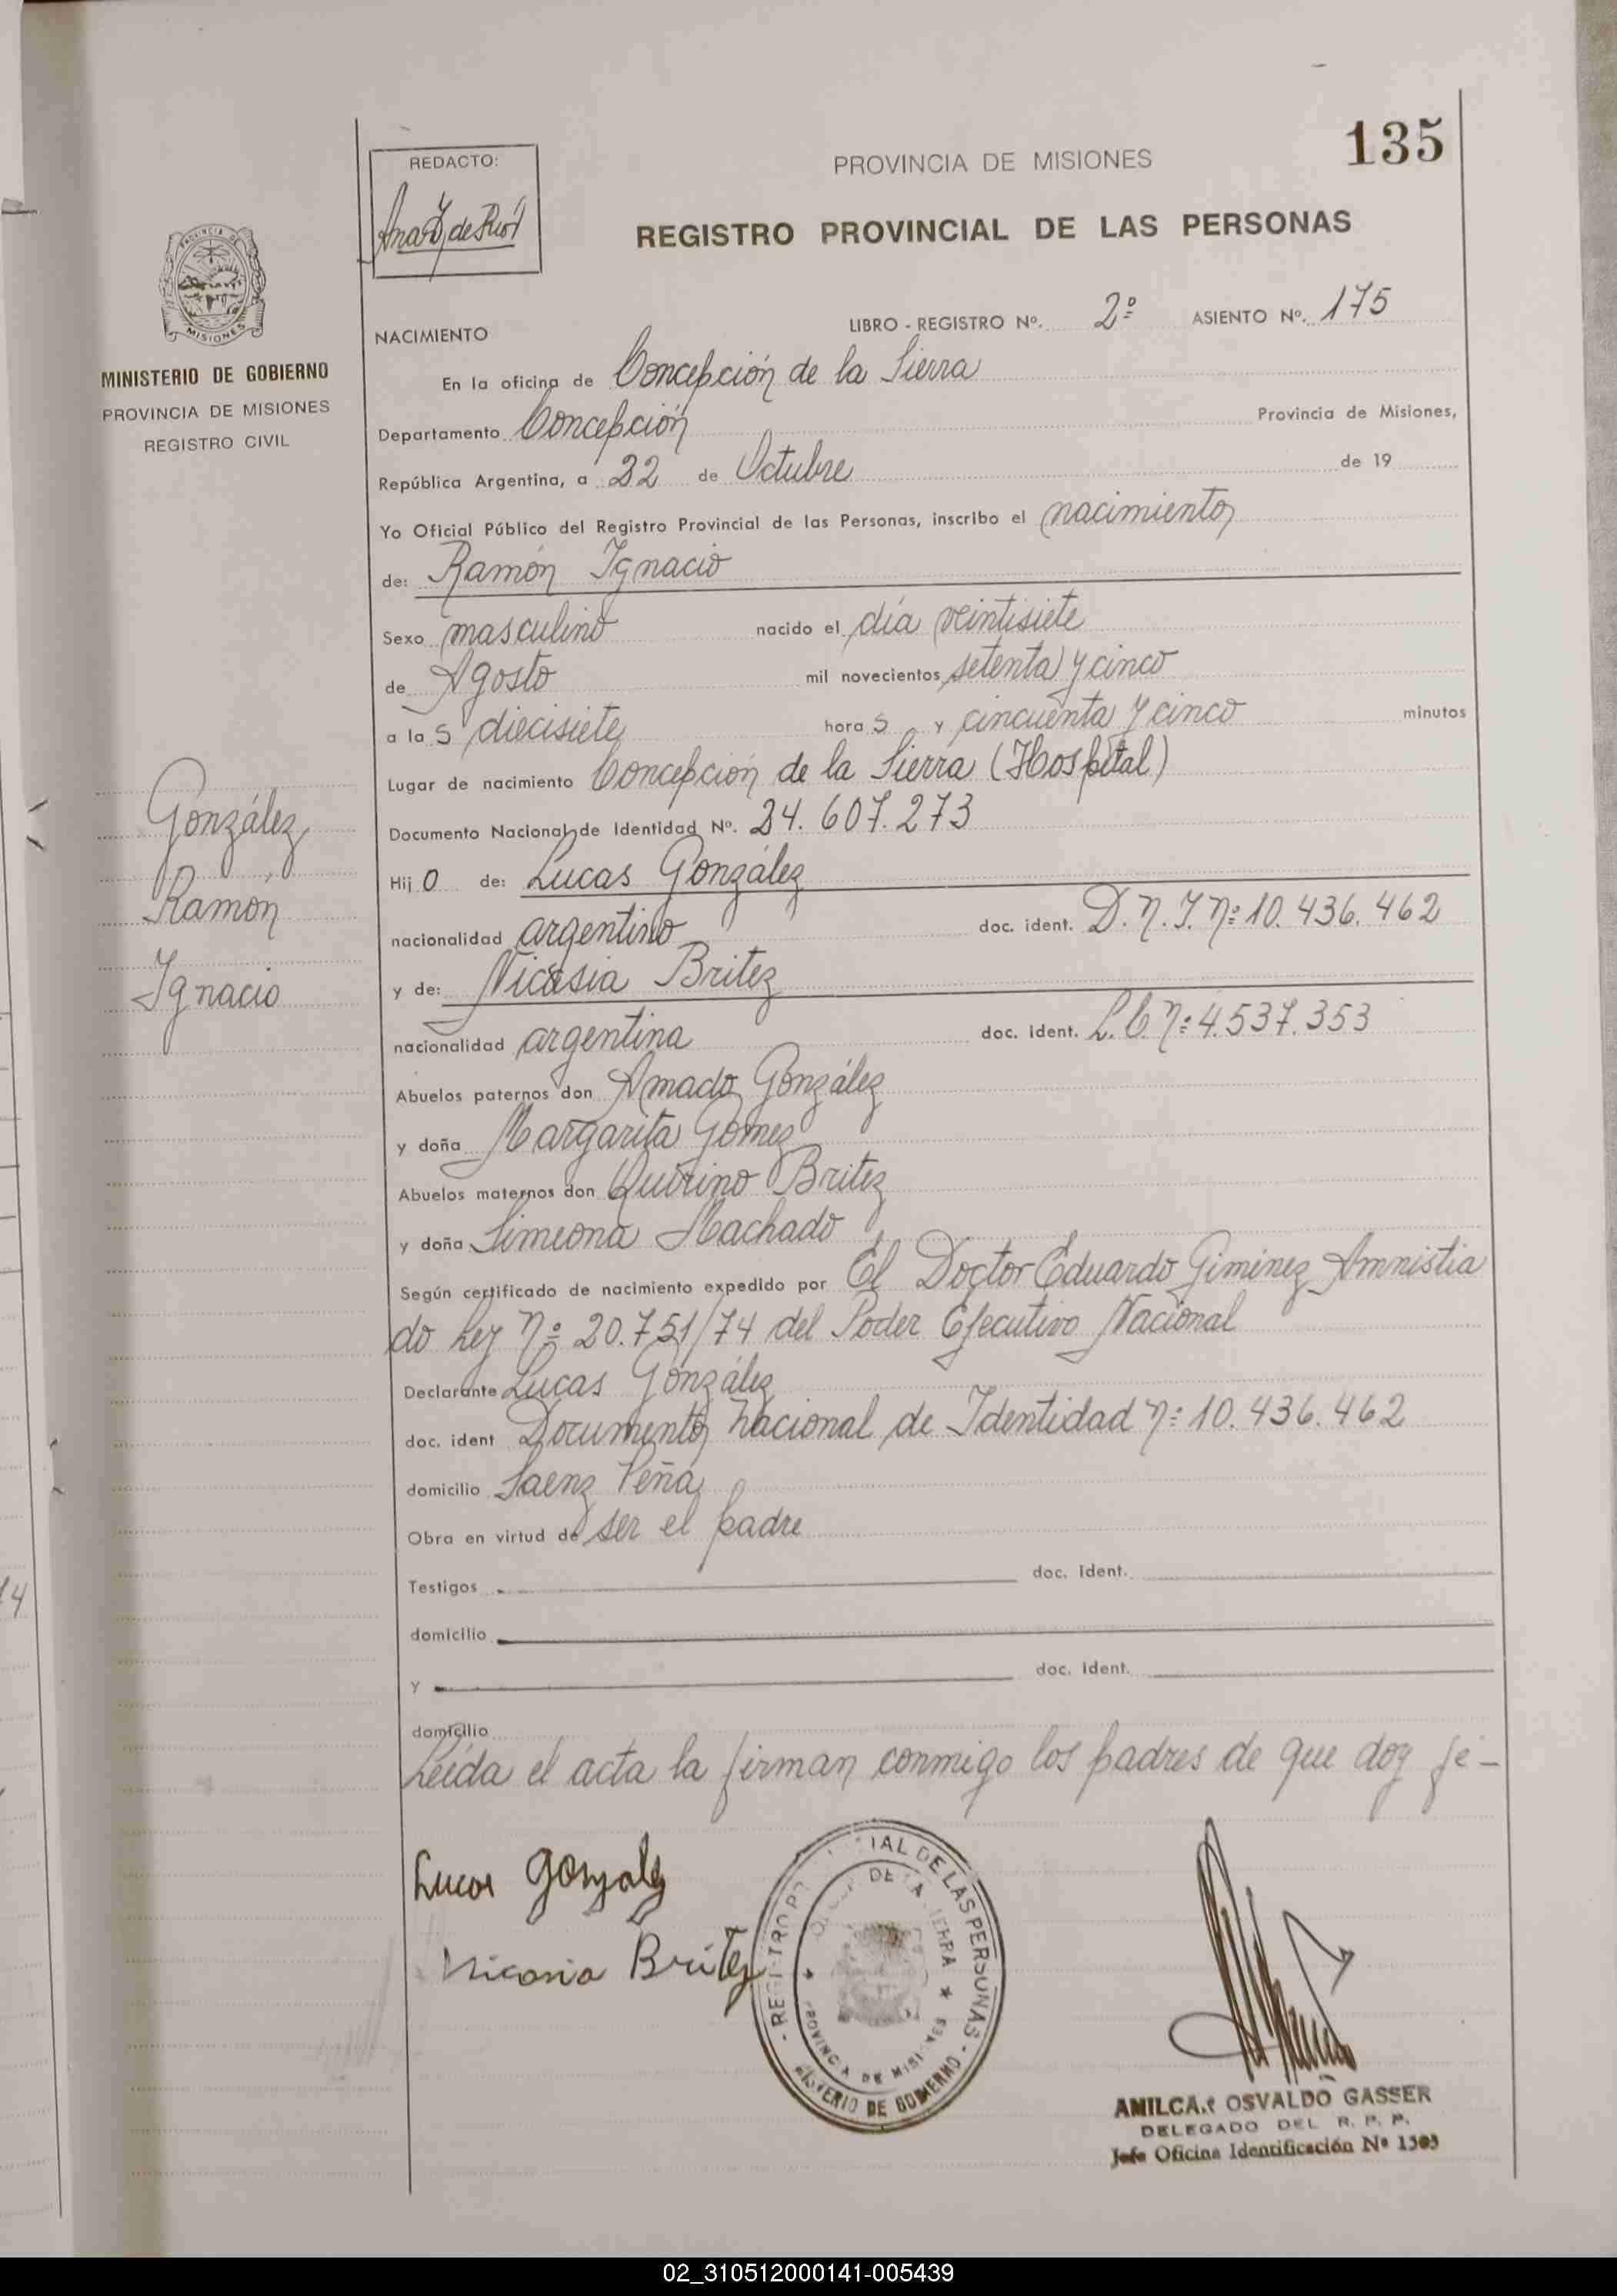 135
REDACTO:
PROVINCIA DE MISIONES
REGISTRO PROVINCIAL DE LAS PERSONAS
PROVINCIA DE
MISIONES
MINISTERIO DE GOBIERNO
PROVINCIA DE MISIONES
REGISTRO CIVIL
NACIMIENTO
LIBRO - REGISTRO Nº. 2º ASIENTO Nº. 175
En la oficina de Concepción de la Sierra
Departamento Concepción Provincia de Misiones,
República Argentina, a 22 de Octubre de 19
Yo Oficial Público del Registro Provincial de las Personas, inscribo el nacimiento
de: Ramón Ignacio
Sexo masculino nacido el día veintisiete
de Agosto mil novecientos setenta y cinco
a las diecisiete horas y cincuenta y cinco minutos
Lugar de nacimiento Concepción de la Sierra (Hospital)
Documento Nacional de Identidad Nº. 24.607.273
Hijo de: Lucas González
nacionalidad argentino doc. ident. D.N.I. Nº: 10.436.462
y de: Nicasia Britez
nacionalidad argentina doc. ident. L.C. Nº: 4.537.353
Abuelos paternos don Amado González
y doña Margarita Gomez
Abuelos maternos don Quirino Britez
y doña Simeona Machado
Según certificado de nacimiento expedido por El Doctor Eduardo Giminez Amnistia
do Ley Nº 20.751/74 del Poder Ejecutivo Nacional
Declarante Lucas González
doc. ident Documento Nacional de Identidad Nº: 10.436.462
domicilio Saenz Peña
Obra en virtud de ser el padre
Testigos doc. Ident.
domicilio
y doc. Ident.
domicilio
Leida el acta la firman conmigo los padres de que doy fé-
González
Ramón
Ignacio
Lucas Gonzalez
Nicasia Britez
IAL DE LAS PERSONAS
PROVINCIA DE MISIONES
DE GOBIERNO
AMILCAR OSVALDO GASSER
DELEGADO DEL R. P. P.
Jefe Oficina Identificación Nº 1505
02_310512000141-005439